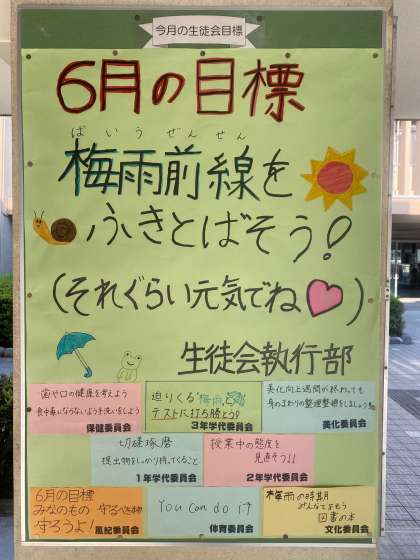 今月の生徒会目標
6月の目標
ばいうぜんせん
梅雨前線を
ふきとばそう!
(それぐらい元気でね♡)
生徒会執行部
歯や口の健康を考えよう
食中毒にならないよう手洗いをしよう
保健委員会
迫りくる梅雨
テストに打ち勝とう!
3年学代委員会
美化向上週間が終わっても
身のまわりの整理整頓をしましょう!
美化委員会
切磋琢磨
提出物をしっかり守ってくること
1年学代委員会
授業中の態度を
見直そう!!
2年学代委員会
6月の目標
みなのもの 守るべき物
守ろうよ!
風紀委員会
You can do it
体育委員会
梅雨の時期
みんなでよもう
図書の本
文化委員会